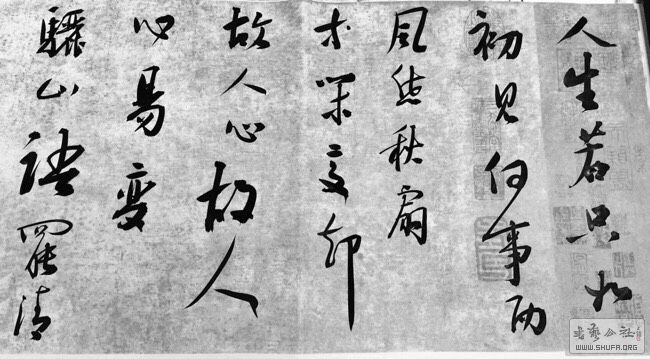 人生若只如
初見何事西
風悲秋扇
等閒變却
故人心故人
心易變
驪山語罷清
書藝公社
WWW.SHUFA.ORG